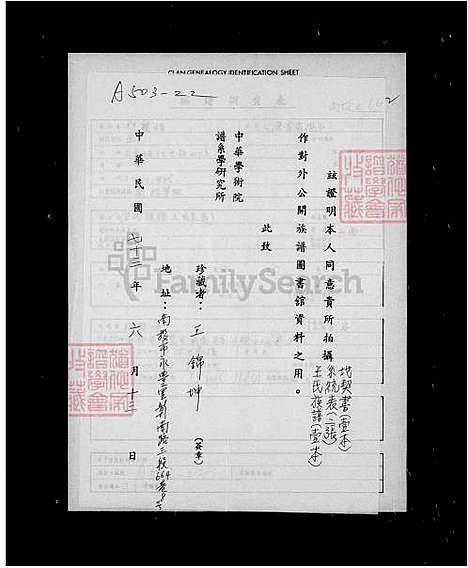 CLAN GENEALOGY IDENTIFICATION SHEET
A503-22
茲證明本人同意貴所拍攝
地契書(壹本)
系統表(二張)
王氏族譜(壹本)
作對外公開族譜圖書館資料之用。
此致
中華學術院
譜系學研究所
珍藏者：王錦坤(簽章)
地址：南投市永豐里彰南路三段
中華民國七十三年六月十三日
FamilySearch